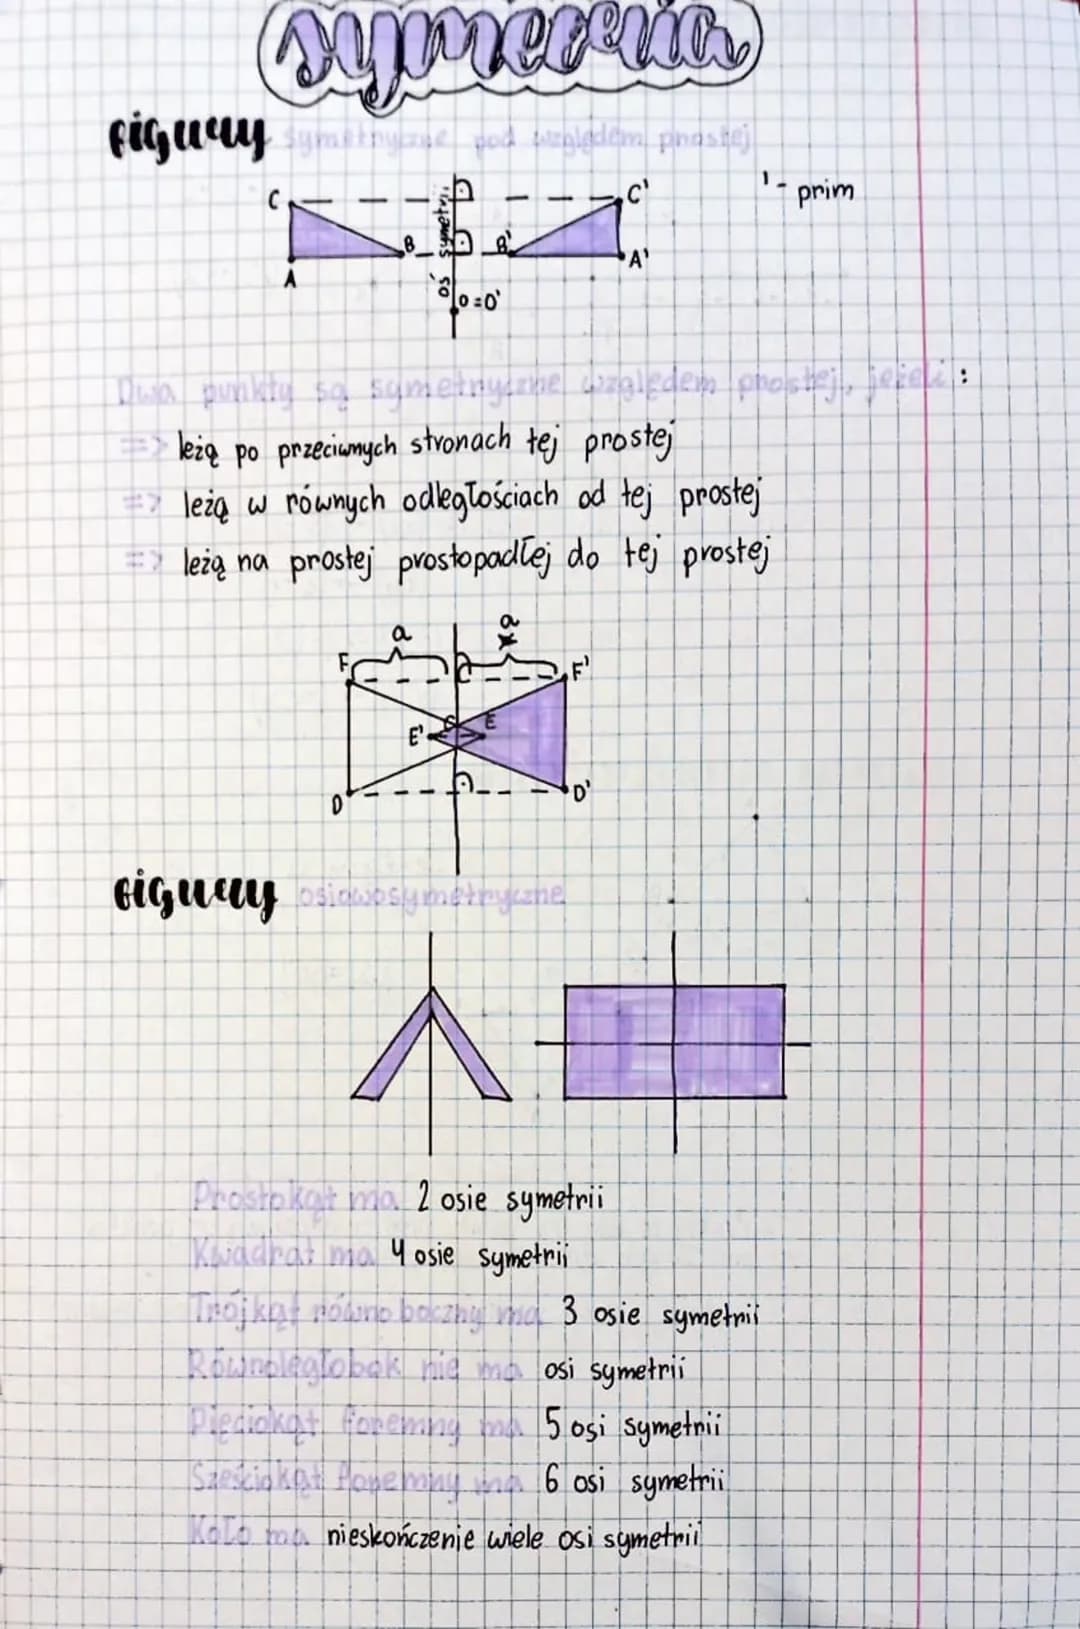 symetria
figury symetryczne pod względem prostej
C C' '- prim
oś symetrii
B B'
A A'
O=O'
Dwa punkty są symetryczne względem prostej, jeżeli :
=> leżą po przeciwnych stronach tej prostej
=> leżą w równych odległościach od tej prostej
=> leżą na prostej prostopadłej do tej prostej
a a
F F'
E' G E
D D'
figury osiowosymetryczne
Prostokąt ma 2 osie symetrii
Kwadrat ma 4 osie symetrii
Trójkąt równoboczny ma 3 osie symetrii
Równoległobok nie ma osi symetrii
Pięciokąt foremny ma 5 osi symetrii
Sześciokąt foremny ma 6 osi symetrii
Koło ma nieskończenie wiele osi symetrii